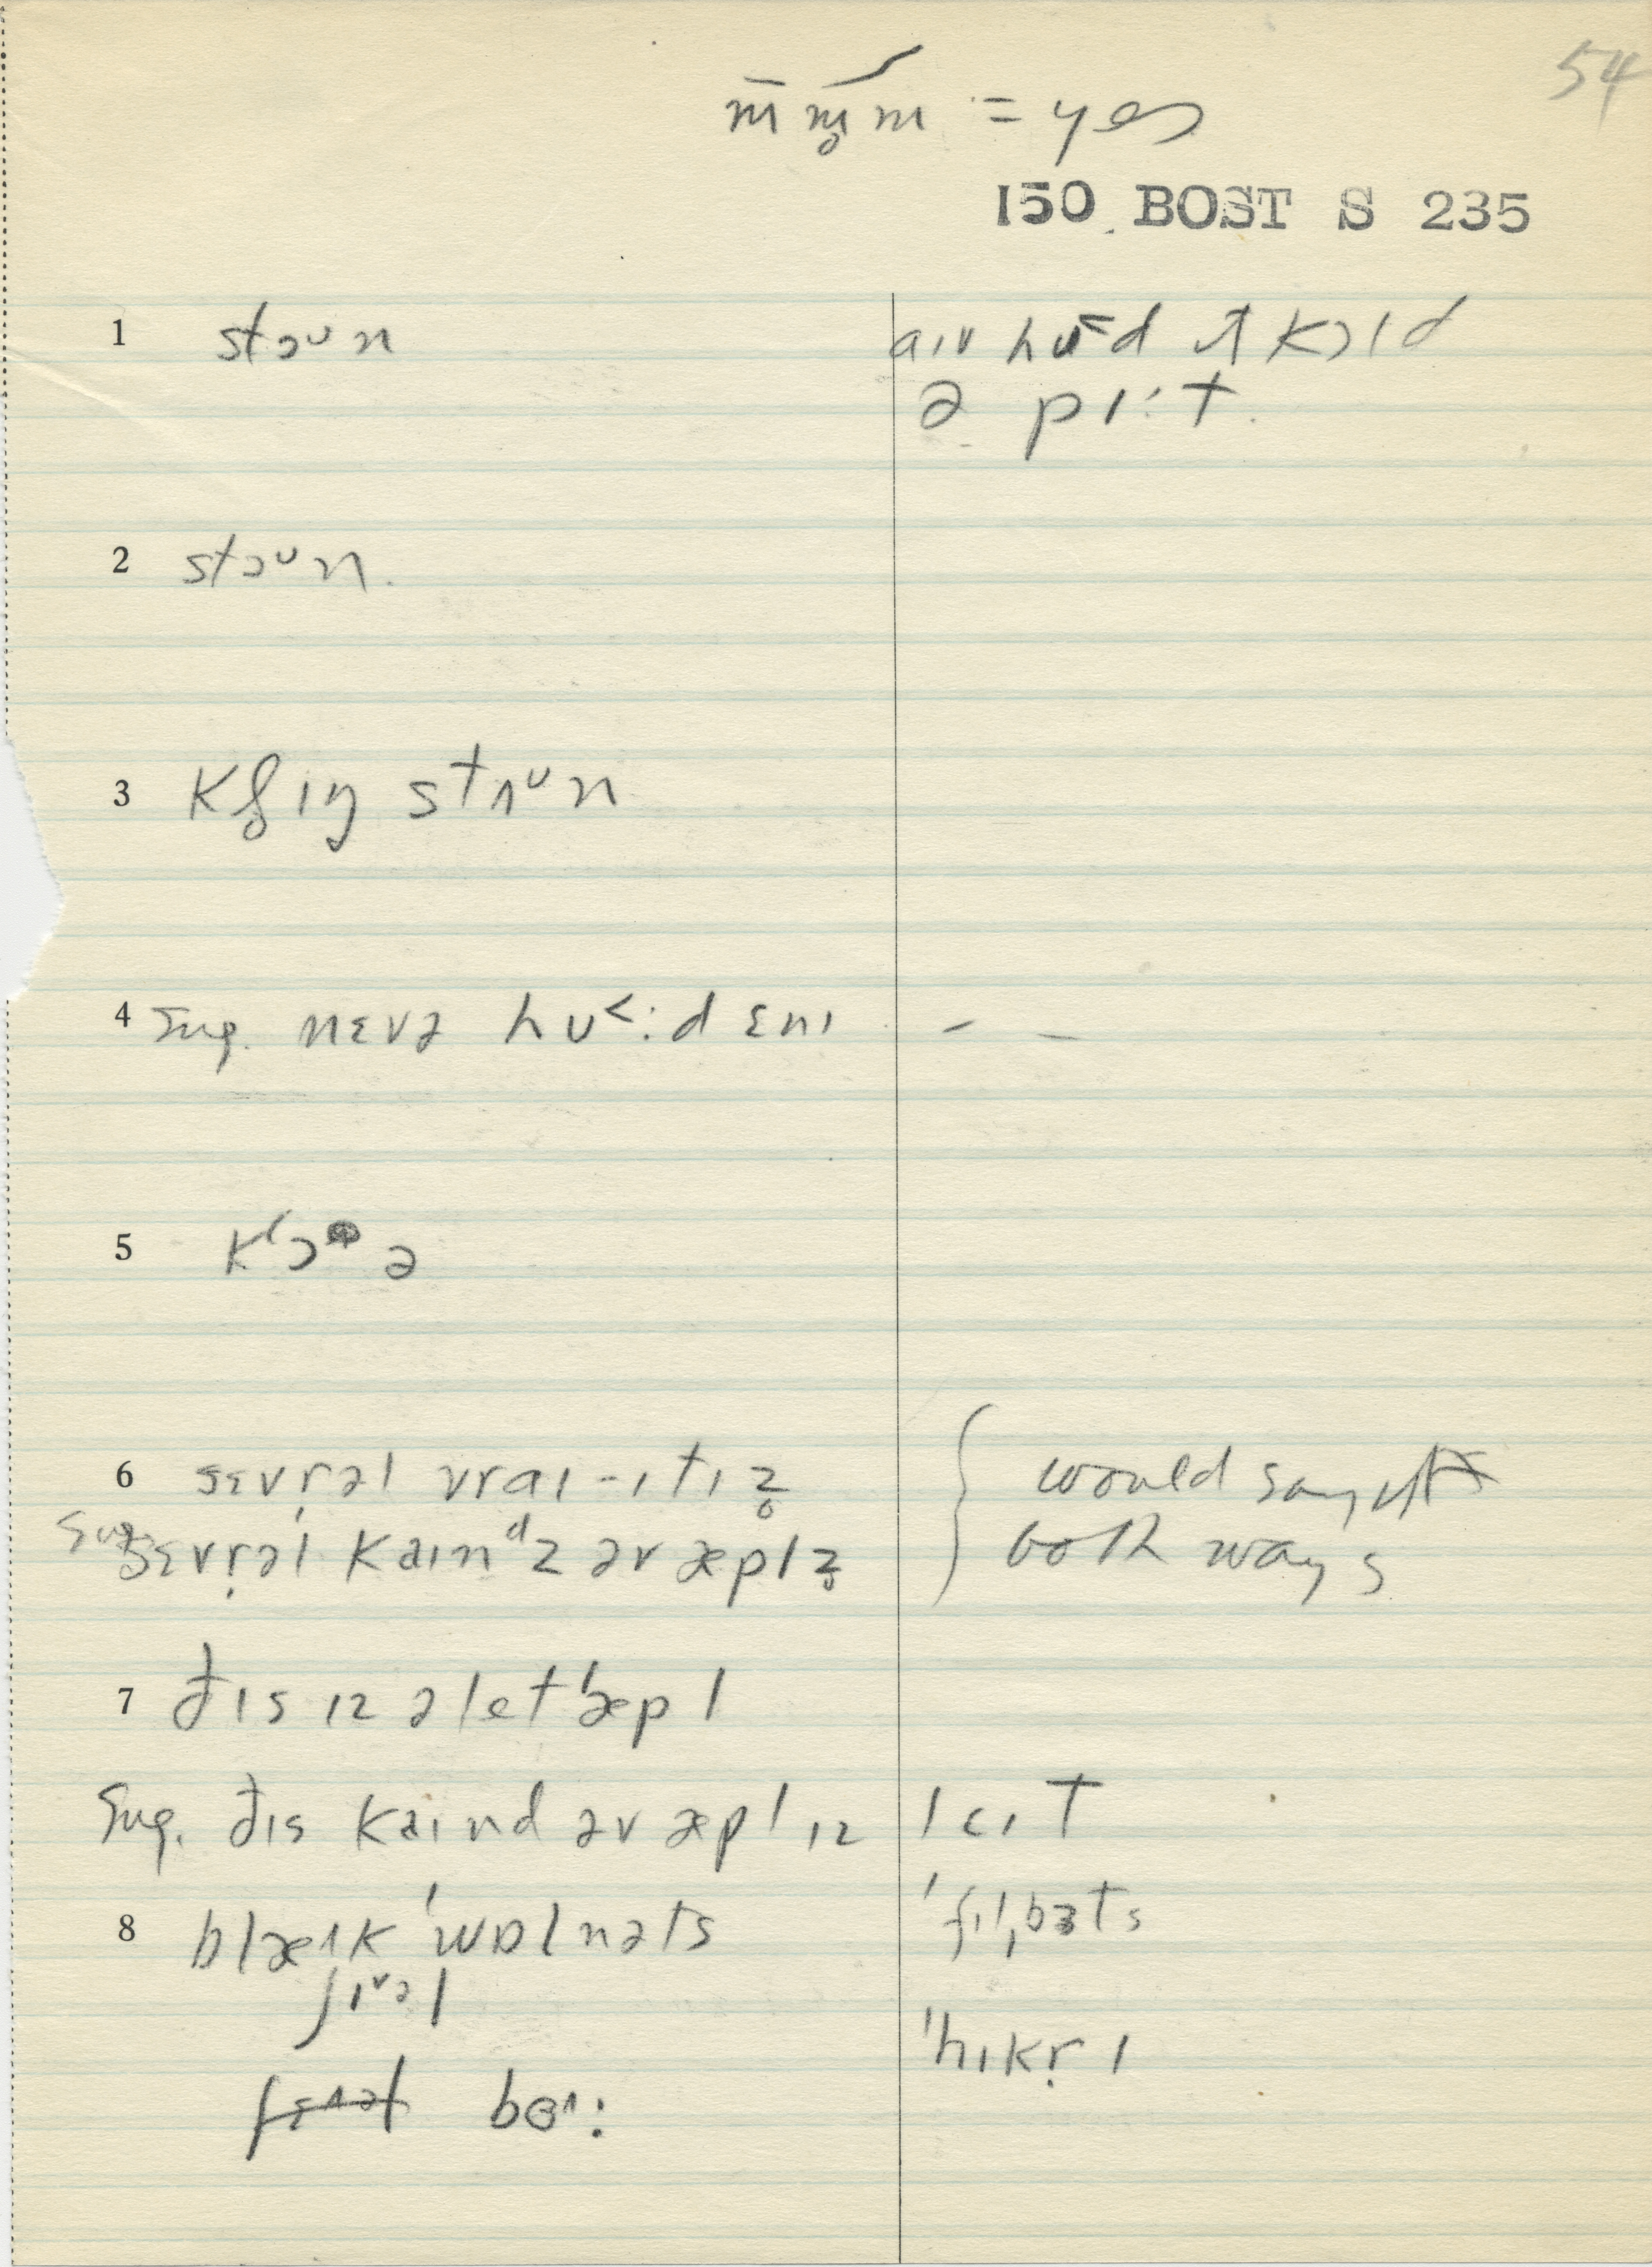 54
m̄ m̥ m = yes
150 BOST S 235
1 stɔᴜn
aɪv hɜd ɪt kɔld
ə pɪt
2 stɔᴜn.
3 stʌᴜn
4 Sug. nɛvə hᴜ<:d ɛnɪ – –
5 kɔ ə
6 sɛvr̩əl vraɪ--ɪtɪz̥
Sug. sɛvr̩əl kaɪnᵈz əv æplz̥
{ would say it
both ways
7 đɪs ɪz ə let ˈæpl
Sug. đɪs kaɪnd əv æpl ɪz leɪt
8 blæᴧk ˈwɒlnəts
ˈfɪlˌbɜts
ʃɪᵛəl
ˈhɪkr̩ɪ
bɵᴧ: